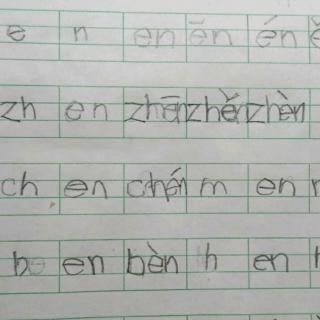 e n en ēn én
zh en zhēn zhěn zhèn
ch en chén m en
b en bèn h en